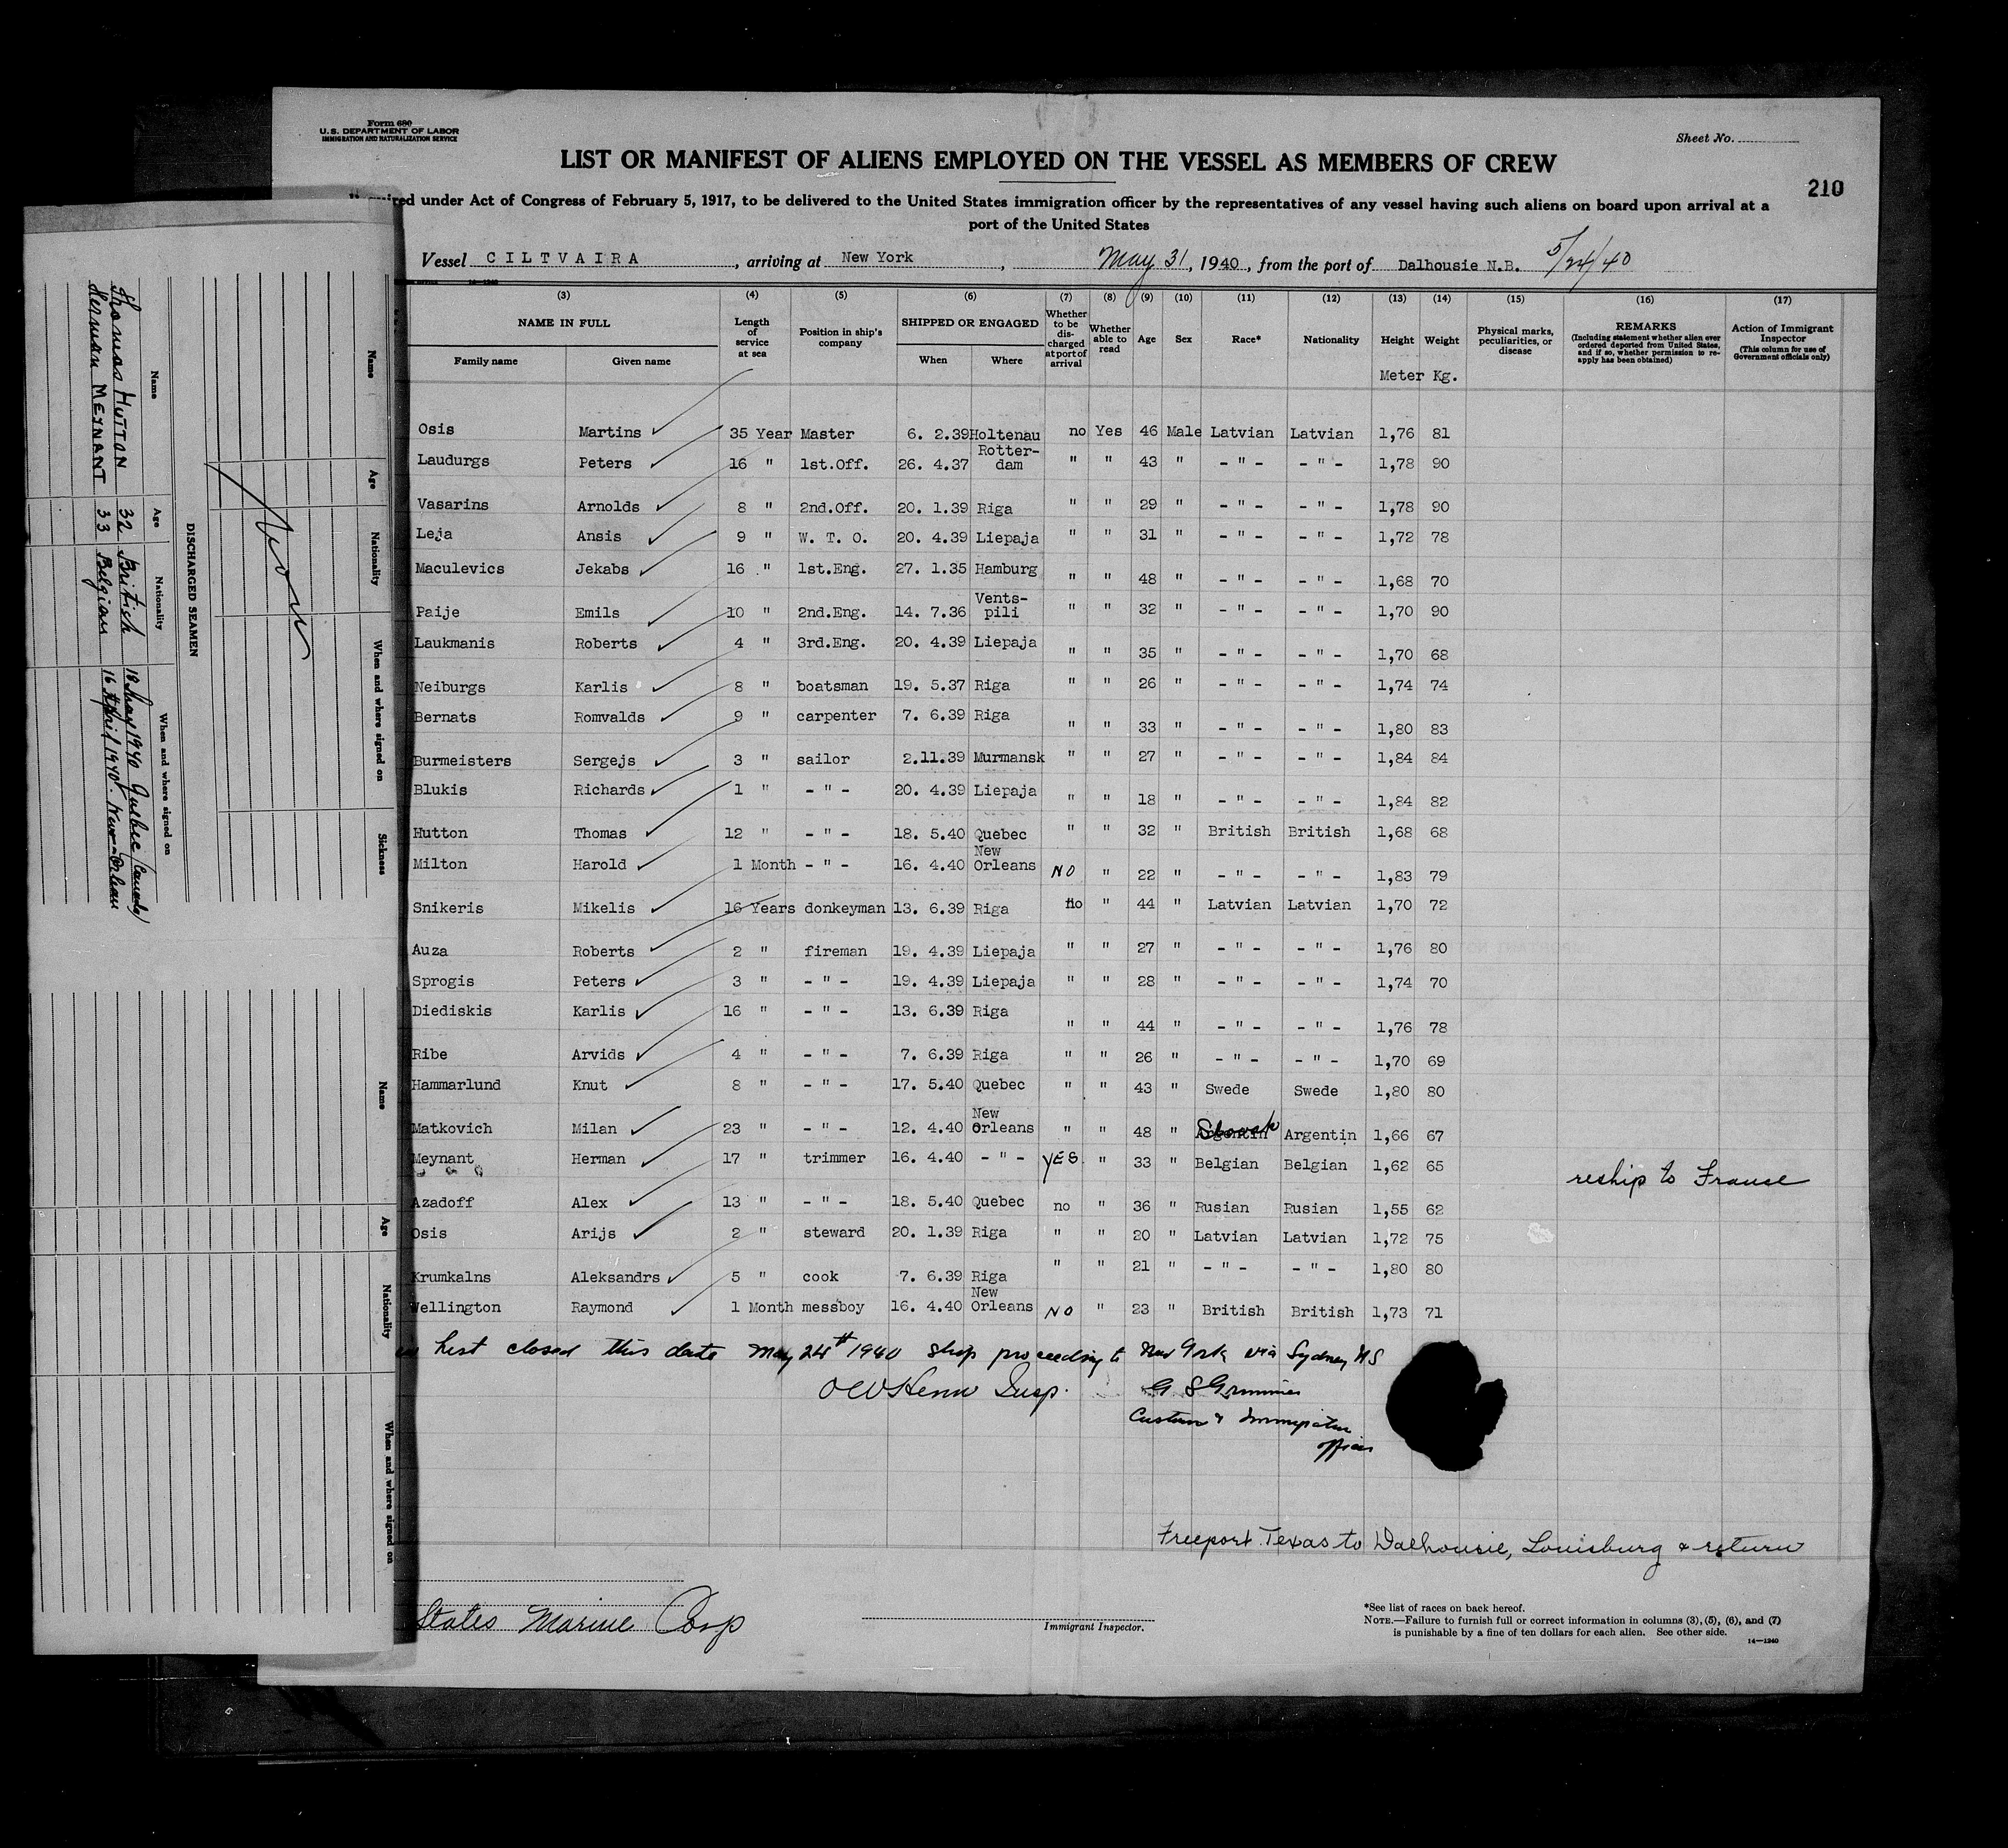 Form 680
U.S. DEPARTMENT OF LABOR
IMMIGRATION AND NATURALIZATION SERVICE
Sheet No.
LIST OR MANIFEST OF ALIENS EMPLOYED ON THE VESSEL AS MEMBERS OF CREW
210
under Act of Congress of February 5, 1917, to be delivered to the United States immigration officer by the representatives of any vessel having such aliens on board upon arrival at a
port of the United States
Vessel CILTVAIRA, arriving at New York, May 31, 1940, from the port of Dalhousie N.B. 5/24/40
(3) (4) (5) (6) (7) (8) (9) (10) (11) (12) (13) (14) (15) (16) (17)
NAME IN FULL Family name Given name
Length of service at sea
Position in ship's company
SHIPPED OR ENGAGED When Where
Whether to be discharged at port of arrival
Whether able to read
Age Sex Race* Nationality Height Weight
Physical marks, peculiarities, or disease
REMARKS (Including statement whether alien ever ordered deported from United States, and if so, whether permission to re-apply has been obtained)
Action of Immigrant Inspector (This column for use of Government officials only)
Meter Kg.
Osis Martins 35 Year Master 6. 2.39 Holtenau no Yes 46 Male Latvian Latvian 1,76 81
Laudurgs Peters 16 " 1st.Off. 26. 4.37 Rotter-dam " " 43 " - " - - " - 1,78 90
Vasarins Arnolds 8 " 2nd.Off. 20. 1.39 Riga " " 29 " - " - - " - 1,78 90
Leja Ansis 9 " W. T. O. 20. 4.39 Liepaja " " 31 " - " - - " - 1,72 78
Maculevics Jekabs 16 " 1st.Eng. 27. 1.35 Hamburg " " 48 " - " - - " - 1,68 70
Paije Emils 10 " 2nd.Eng. 14. 7.36 Vents-pili " " 32 " - " - - " - 1,70 90
Laukmanis Roberts 4 " 3rd.Eng. 20. 4.39 Liepaja " " 35 " - " - - " - 1,70 68
Neiburgs Karlis 8 " boatsman 19. 5.37 Riga " " 26 " - " - - " - 1,74 74
Bernats Romvalds 9 " carpenter 7. 6.39 Riga " " 33 " - " - - " - 1,80 83
Burmeisters Sergejs 3 " sailor 2.11.39 Murmansk " " 27 " - " - - " - 1,84 84
Blukis Richards 1 " - " - 20. 4.39 Liepaja " " 18 " - " - - " - 1,84 82
Hutton Thomas 12 " - " - 18. 5.40 Quebec " " 32 " British British 1,68 68
Milton Harold 1 Month - " - 16. 4.40 New Orleans NO " 22 " - " - - " - 1,83 79
Snikeris Mikelis 16 Years donkeyman 13. 6.39 Riga no " 44 " Latvian Latvian 1,70 72
Auza Roberts 2 " fireman 19. 4.39 Liepaja " " 27 " - " - - " - 1,76 80
Sprogis Peters 3 " - " - 19. 4.39 Liepaja " " 28 " - " - - " - 1,74 70
Diediskis Karlis 16 " - " - 13. 6.39 Riga " " 44 " - " - - " - 1,76 78
Ribe Arvids 4 " - " - 7. 6.39 Riga " " 26 " - " - - " - 1,70 69
Hammarlund Knut 8 " - " - 17. 5.40 Quebec " " 43 " Swede Swede 1,80 80
Matkovich Milan 23 " - " - 12. 4.40 New Orleans " " 48 " Argentin 1,66 67
Meynant Herman 17 " trimmer 16. 4.40 - " - YES " 33 " Belgian Belgian 1,62 65 reship to France
Azadoff Alex 13 " - " - 18. 5.40 Quebec no " 36 " Rusian Rusian 1,55 62
Osis Arijs 2 " steward 20. 1.39 Riga " " 20 " Latvian Latvian 1,72 75
Krumkalns Aleksandrs 5 " cook 7. 6.39 Riga " " 21 " - " - - " - 1,80 80
Wellington Raymond 1 Month messboy 16. 4.40 New Orleans NO " 23 " British British 1,73 71
List closed this date May 24th 1940 ship proceeding to New York via Sydney NS
Insp.
Customs & Immigration
officer
Freeport Texas to Dalhousie, Louisburg & return
States Marine Corp
Immigrant Inspector.
*See list of races on back hereof.
NOTE.—Failure to furnish full or correct information in columns (3), (5), (6), and (7)
is punishable by a fine of ten dollars for each alien. See other side.
14—1240
Name Age Nationality When and where signed on Sickness
DISCHARGED SEAMEN
Name Age Nationality When and where signed on
Thomas HUTTON 32 British 18 May 1940 Quebec (Canada)
Herman MEYNANT 33 Belgian 16 April 1940. New-Orleans
Name Age Nationality When and where signed on